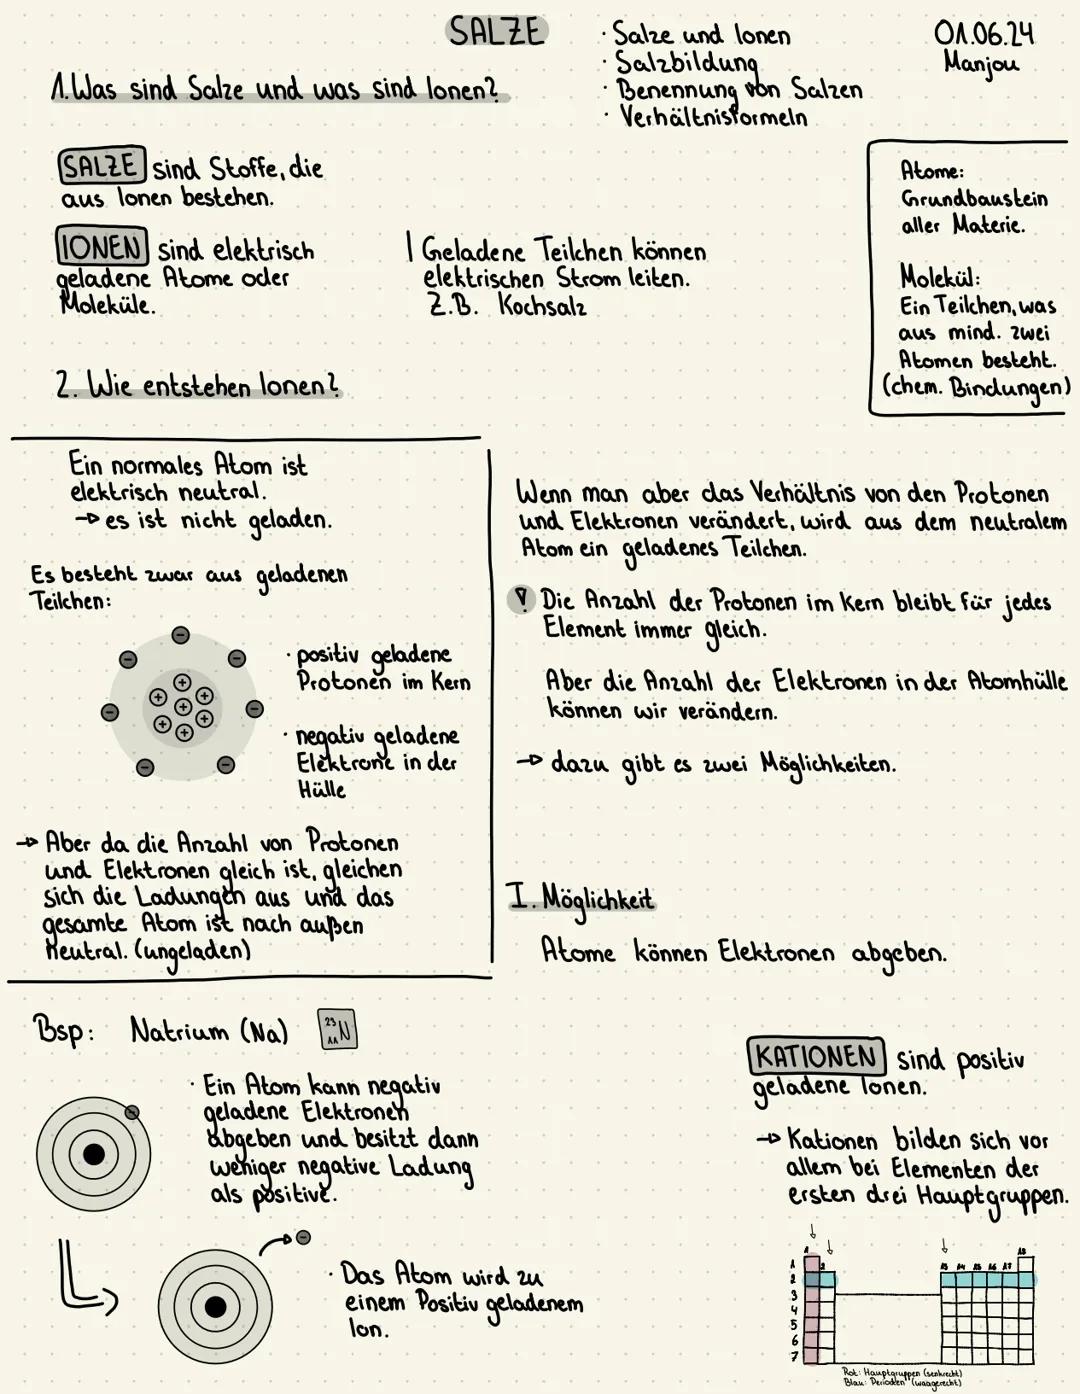 SALZE
· Salze und Ionen
· Salzbildung
· Benennung von Salzen
· Verhältnisformeln
01.06.24
Manjou
1. Was sind Salze und was sind Ionen?
SALZE sind Stoffe, die
aus Ionen bestehen.
IONEN sind elektrisch
geladene Atome oder
Moleküle.
| Geladene Teilchen können
elektrischen Strom leiten.
Z.B. Kochsalz
Atome:
Grundbaustein
aller Materie.
Molekül:
Ein Teilchen, was
aus mind. zwei
Atomen besteht.
(chem. Bindungen)
2. Wie entstehen Ionen?
Ein normales Atom ist
elektrisch neutral.
→ es ist nicht geladen.
Es besteht zwar aus geladenen
Teilchen:
· positiv geladene
Protonen im Kern
· negativ geladene
Elektrone in der
Hülle
→ Aber da die Anzahl von Protonen
und Elektronen gleich ist, gleichen
sich die Ladungen aus und das
gesamte Atom ist nach außen
neutral. (ungeladen)
Wenn man aber das Verhältnis von den Protonen
und Elektronen verändert, wird aus dem neutralem
Atom ein geladenes Teilchen.
! Die Anzahl der Protonen im Kern bleibt für jedes
Element immer gleich.
Aber die Anzahl der Elektronen in der Atomhülle
können wir verändern.
→ dazu gibt es zwei Möglichkeiten.
I. Möglichkeit
Atome können Elektronen abgeben.
Bsp: Natrium (Na)
23
11 N
· Ein Atom kann negativ
geladene Elektronen
abgeben und besitzt dann
weniger negative Ladung
als positive.
· Das Atom wird zu
einem Positiv geladenem
Ion.
KATIONEN sind positiv
geladene Ionen.
→ Kationen bilden sich vor
allem bei Elementen der
ersten drei Hauptgruppen.
1
2
13 14 15 16 17
18
1
2
3
4
5
6
7
Rot: Hauptgruppen (senkrecht)
Blau: Perioden (waagerecht)